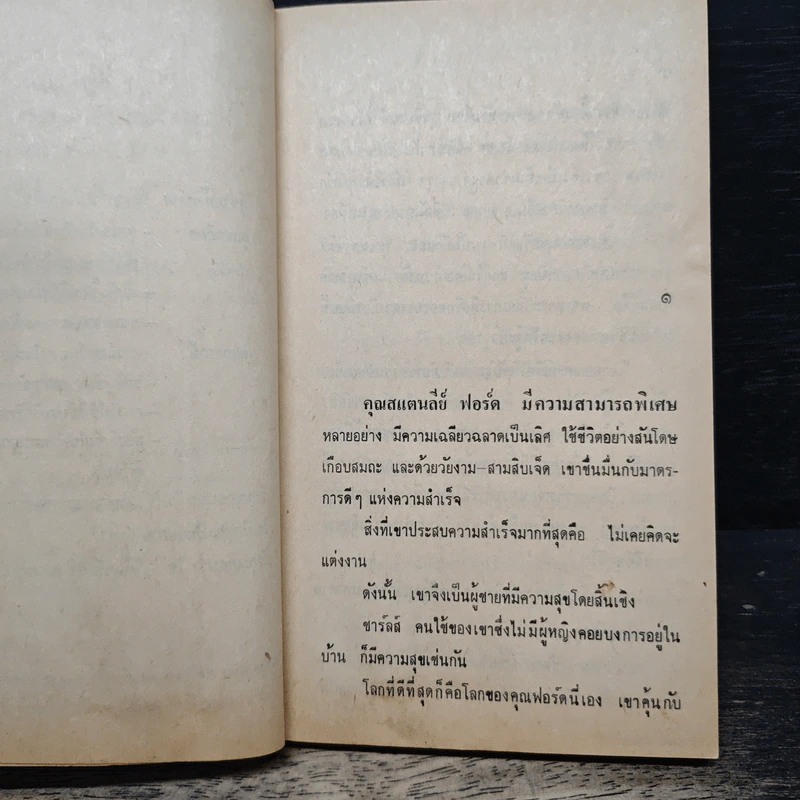 ๑
คุณสแตนลีย์ ฟอร์ด มีความสามารถพิเศษ
หลายอย่าง มีความเฉลียวฉลาดเป็นเลิศ ใช้ชีวิตอย่างสันโดษ
เกือบสมถะ และด้วยวัยงาม–สามสิบเจ็ด เขาชื่นมื่นกับมาตร-
การดีๆ แห่งความสำเร็จ
สิ่งที่เขาประสบความสำเร็จมากที่สุดคือ ไม่เคยคิดจะ
แต่งงาน
ดังนั้น เขาจึงเป็นผู้ชายที่มีความสุขโดยสิ้นเชิง
ชาร์ลส์ คนใช้ของเขาซึ่งไม่มีผู้หญิงคอยบงการอยู่ใน
บ้าน ก็มีความสุขเช่นกัน
โลกที่ดีที่สุดก็คือโลกของคุณฟอร์ดนี่เอง เขาคุ้นกับ